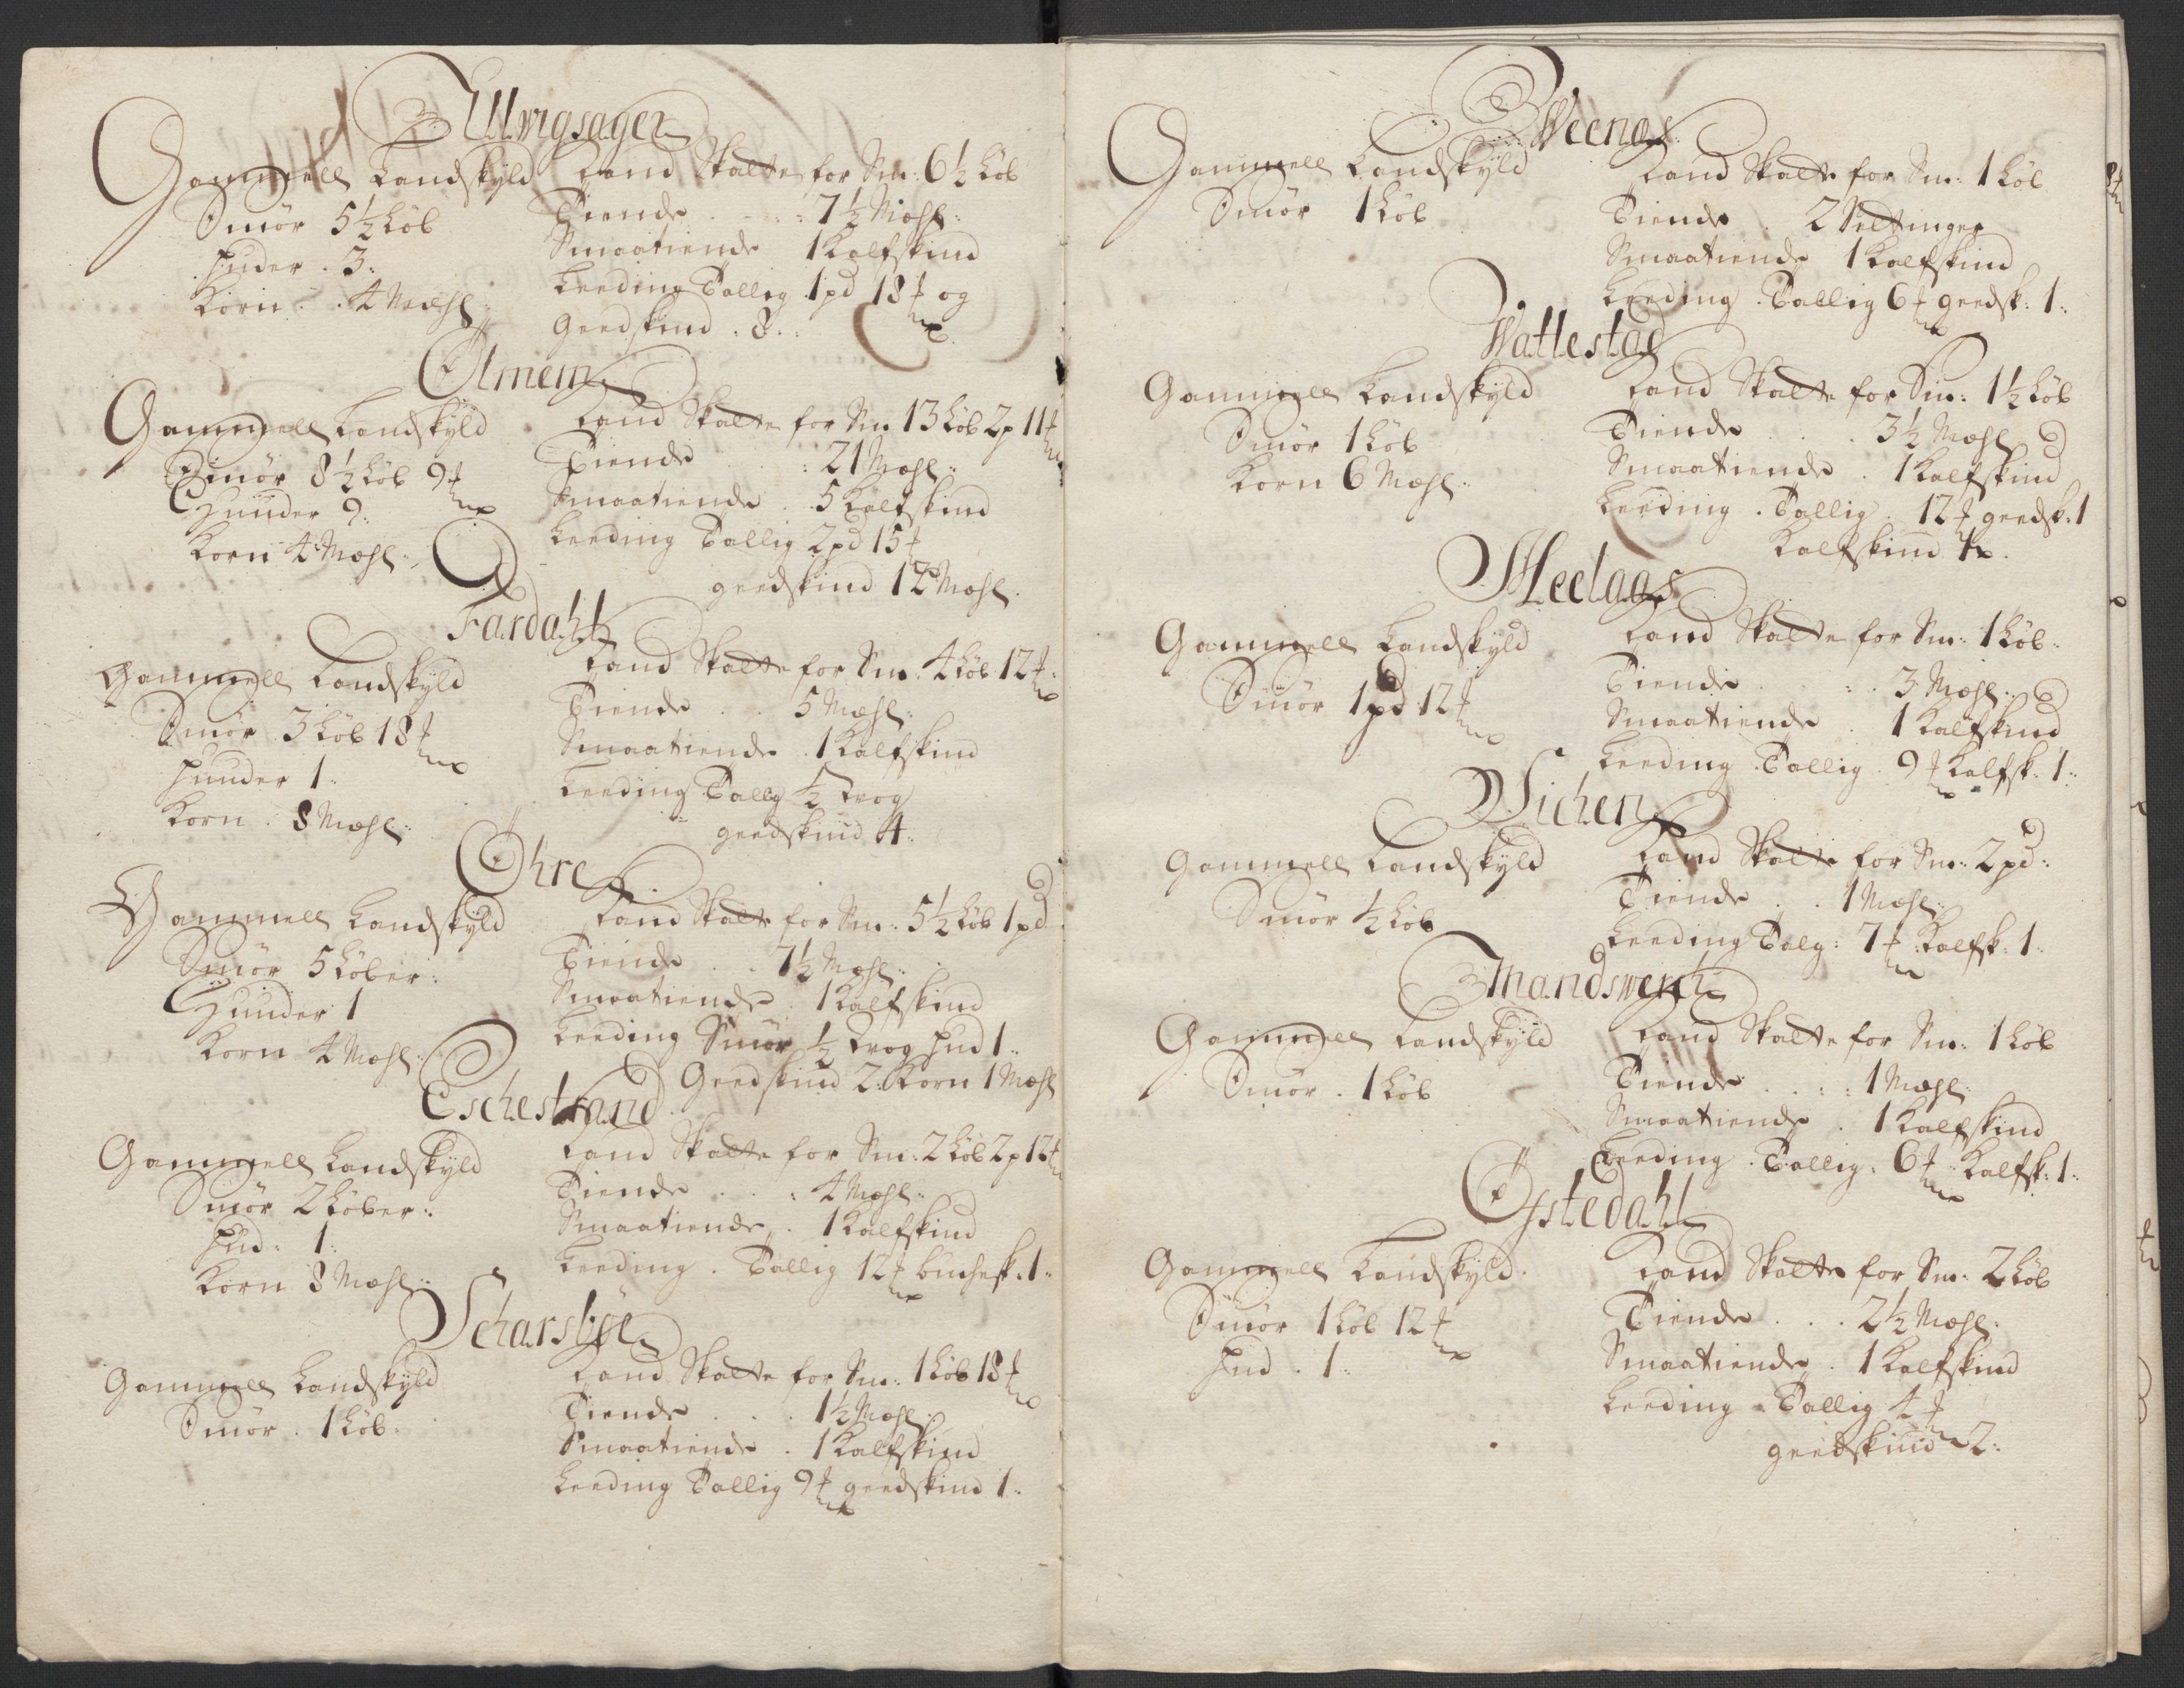 Ullvigsager
Gammell Landskyld
Smör 5½ Löb
Huder . 3.
Korn . . 4 Mæhl
Land Skatte for Sm: 6½ Löb
Tiende . . . 7½ Mæhl:
Smaatiende 1 Kalfskind
Leeding Tallig 1 pd 18 ℔ og
Geedskind . 8 . .
Olmem
Gammell Landskyld
Smör 8½ Löb 9 ℔
Huuder 9:
Korn 4 Mæhl:
Land Skatte for Sm 13 Löb 2 p 11 ℔
Tiende . . : 21 Mæhl:
Smaatiende . . 5 Kalfskind
Leeding Tallig 2 pd 15 ℔
geedskind 12 Mæhl.
Fardahl
Gammell Landskyld
Smör 3 Löb 18 ℔
Huuder 1:
Korn . 8 Mæhl:
Land Skatte for Sm: 4 Löb 12 ℔:
Tiende . . 5 Mæhl:
Smaatiende . 1 Kalfskind
Leeding Tallg ½ trog
geedskind 4:
Ohre
Gammell Landskyld
Smör 5 Löber:
Huuder 1
Korn 4 Mæhl:
Land Skatte for Sm: 5½ Löb 1 pd
Tiende . . 7½ Mæhl:
Smaatiende . 1 Kalfskind
Leeding Smör ½ trog Hud 1:
Geedskind 2: Korn 1 Mæhl
Eschestrand
Gammell Landskyld
Smör 2 Löber:
Hud: 1:
Korn 8 Mæhl:
Land Skatte for Sm: 2 Löb 2 p 12 ℔
Tiende . . : 4 Mæhl:
Smaatiende . 1 Kalfskind
Leeding . Tallig 12 ℔ buchesk: 1:
Scharsböe
Gammell Landskyld
Smör . 1 Löb.
Land Skatte for Sm: 1 Löb 18 ℔
Tiende . . . 1½ Mæhl
Smaatiende . 1 Kalfskind
Leeding Tallig 9 ℔ geedskind 1:
Weenæs
Gammell Landskyld
Smör 1 Löb
Land Skatte for Sm: 1 Löb
Tiende . 2 Settinger
Smaatiende 1 Kalfskind
Leeding . Tallig 6 ℔ geedsk: 1:
Wattestad
Gammell Landskyld
Smör 1 Löb
Korn 6 Mæhl:
Land Skatte for Sm: 1½ Löb
Tiende . . . 3½ Mæhl
Smaatiende . 1 Kalfskind
Leeding . Tallig . 12 ℔ geedsk: 1
Kalfskind 1.
Meelaas
Gammell Landskyld
Smör 1 pd 12 ℔
Land Skatte for Sm: 1 Löb:
Tiende . . . 3 Mæhl:
Smaatiende . 1 Kalfskind
Leeding . Tallig . 9 ℔ Kalfsk: 1:
Wichen
Gammell Landskyld
Smör ½ Löb
Land Skatte for Sm: 2 pd:
Tiende . . 1 Mæhl:
Leeding Talg: 7 ℔ Kalfsk: 1:
Mandswerch
Gammell Landskyld
Smör . 1 Löb
Land Skatte for Sm: 1 Löb
Tiende . . : 1 Mæhl:
Smaatiende . 1 Kalfskind
Leeding . Tallig: 6 ℔ Kalfsk: 1:
Ofstedahl
Gammell Landskyld:
Smör 1 Löb 12 ℔
Hud . 1:
Land Skatte for Sm: 2 Löb
Tiende . . . 2½ Mæhl:
Smaatiende . 1 Kalfskind
Leeding . Tallig 4 ℔
geedskind 2: